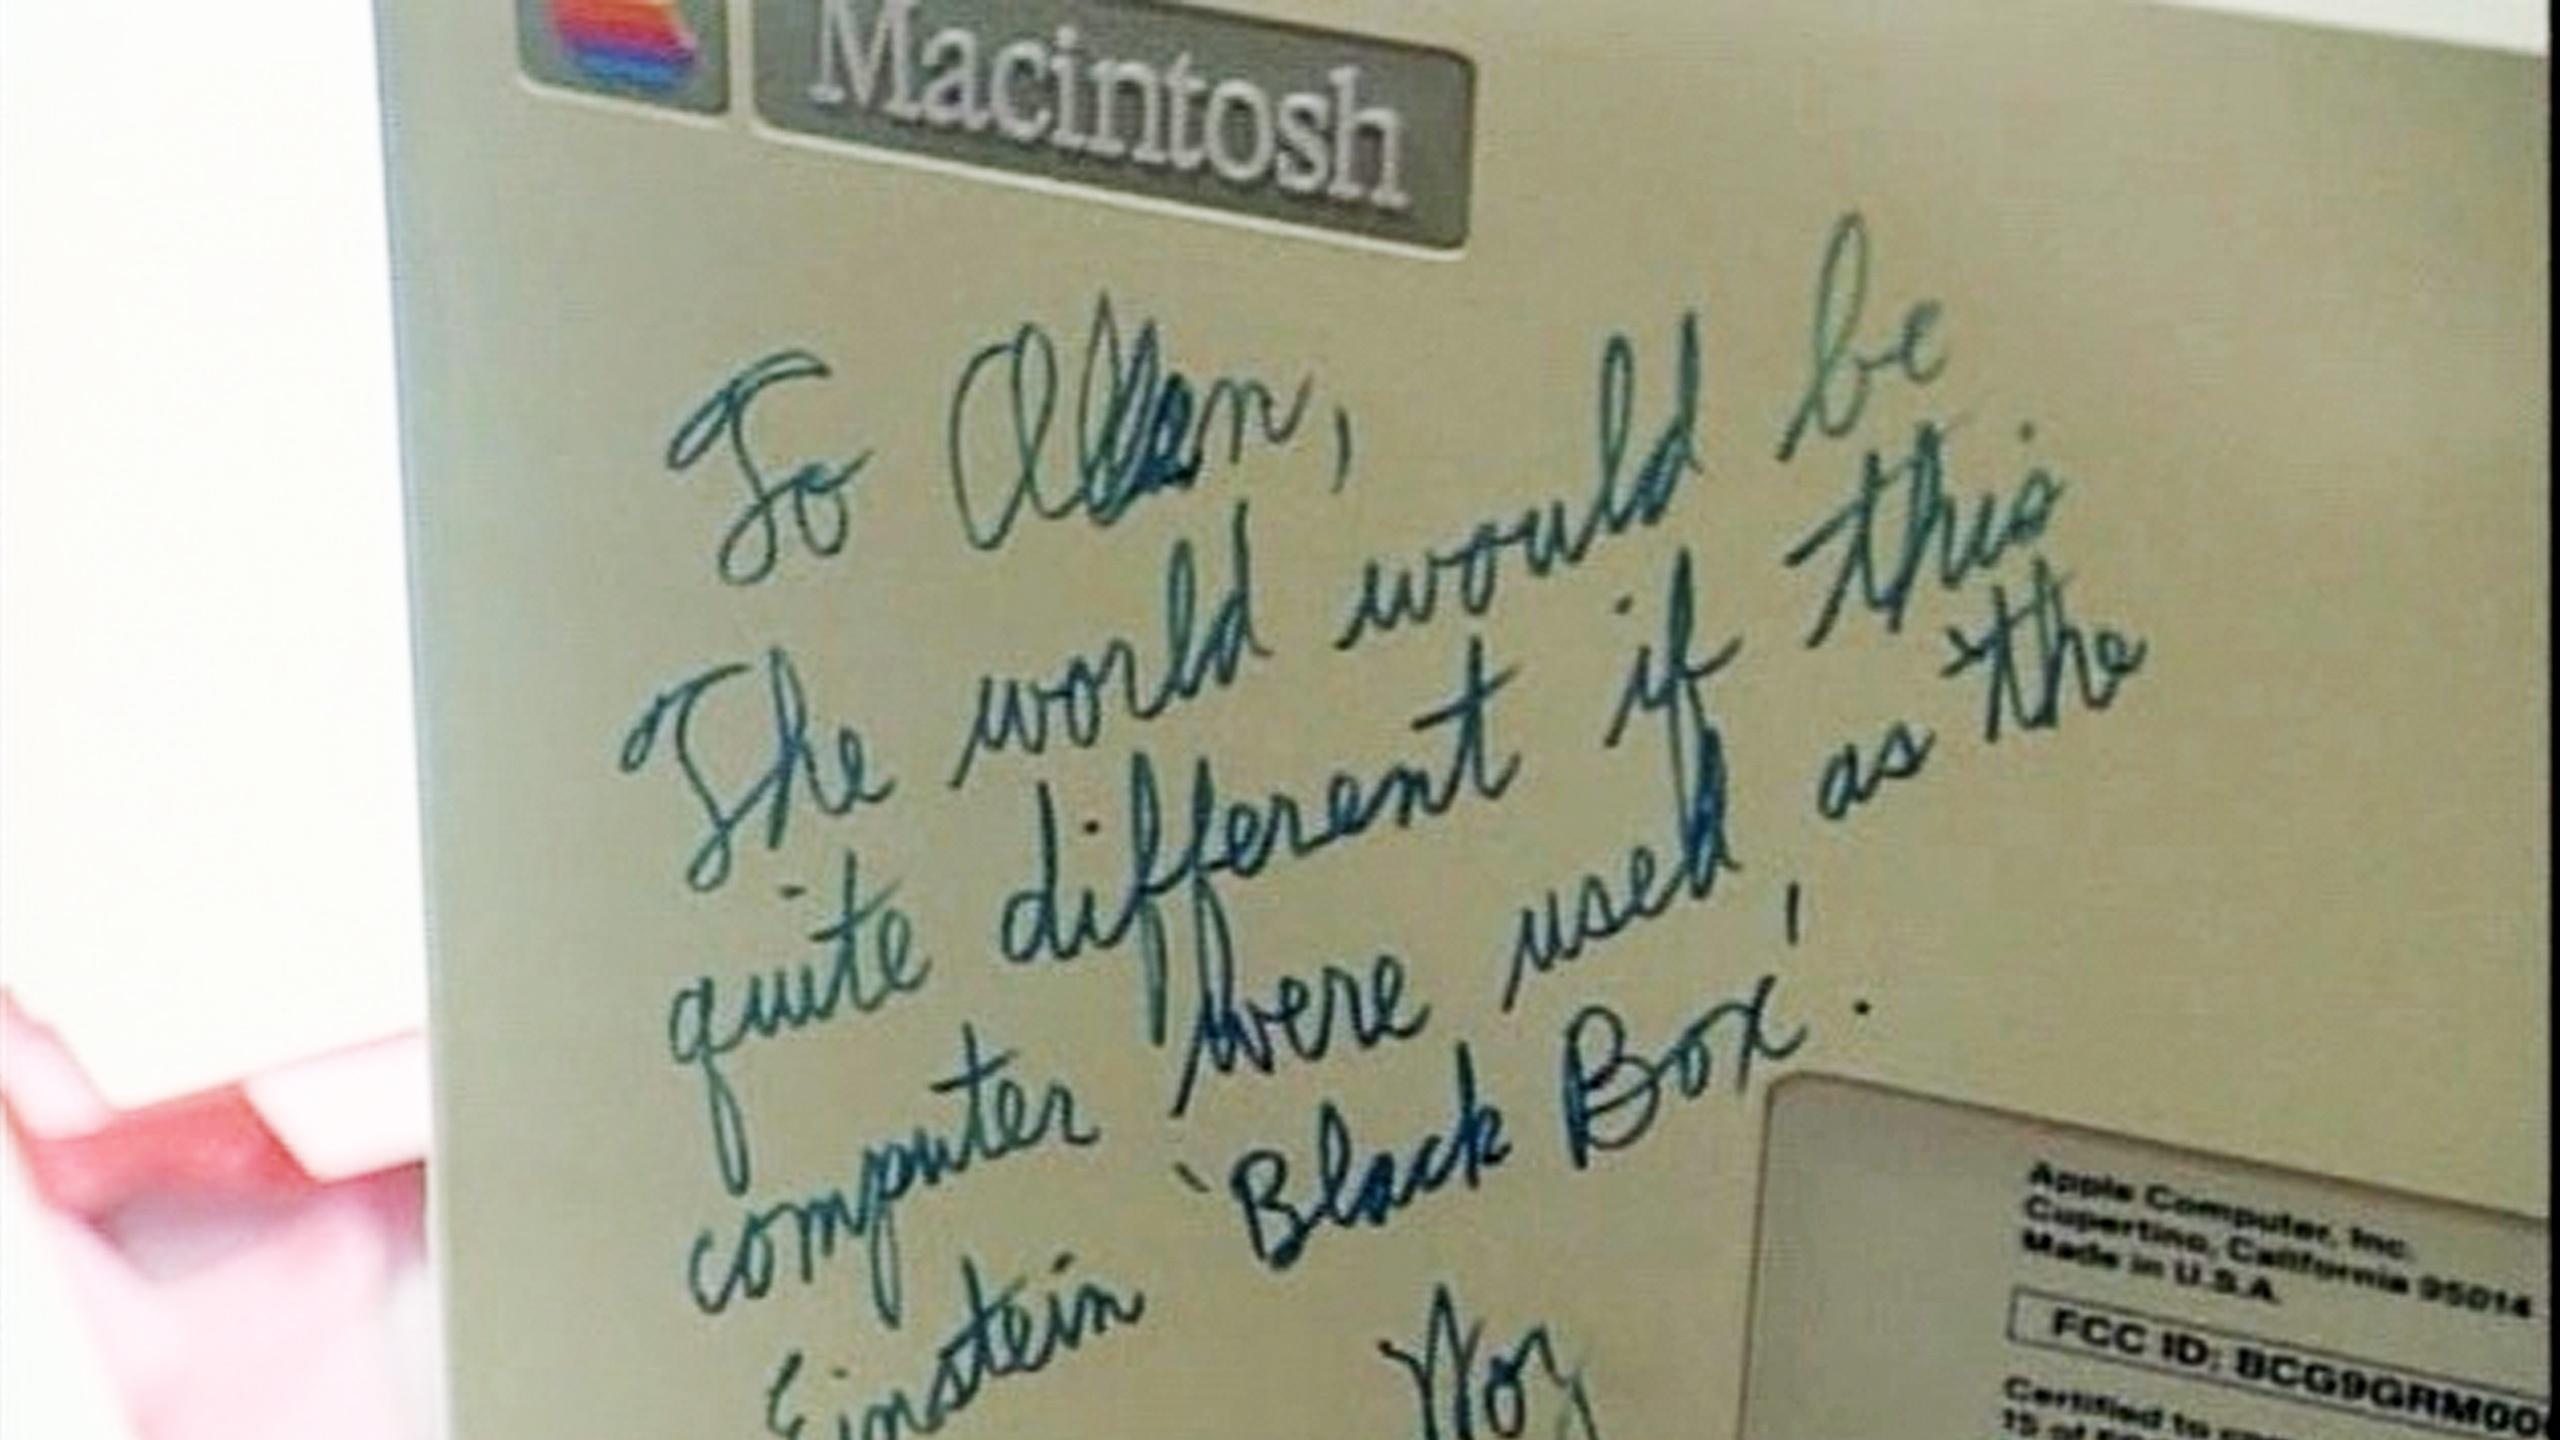 Macintosh
To Allan,
The world would be
quite different if this
computer were used as the
Einstein 'Black Box'.
Woz
Apple Computer, Inc.
Cupertino, California 95014
Made in U.S.A.
FCC ID: BCG9GRM00
Certified to
15 of